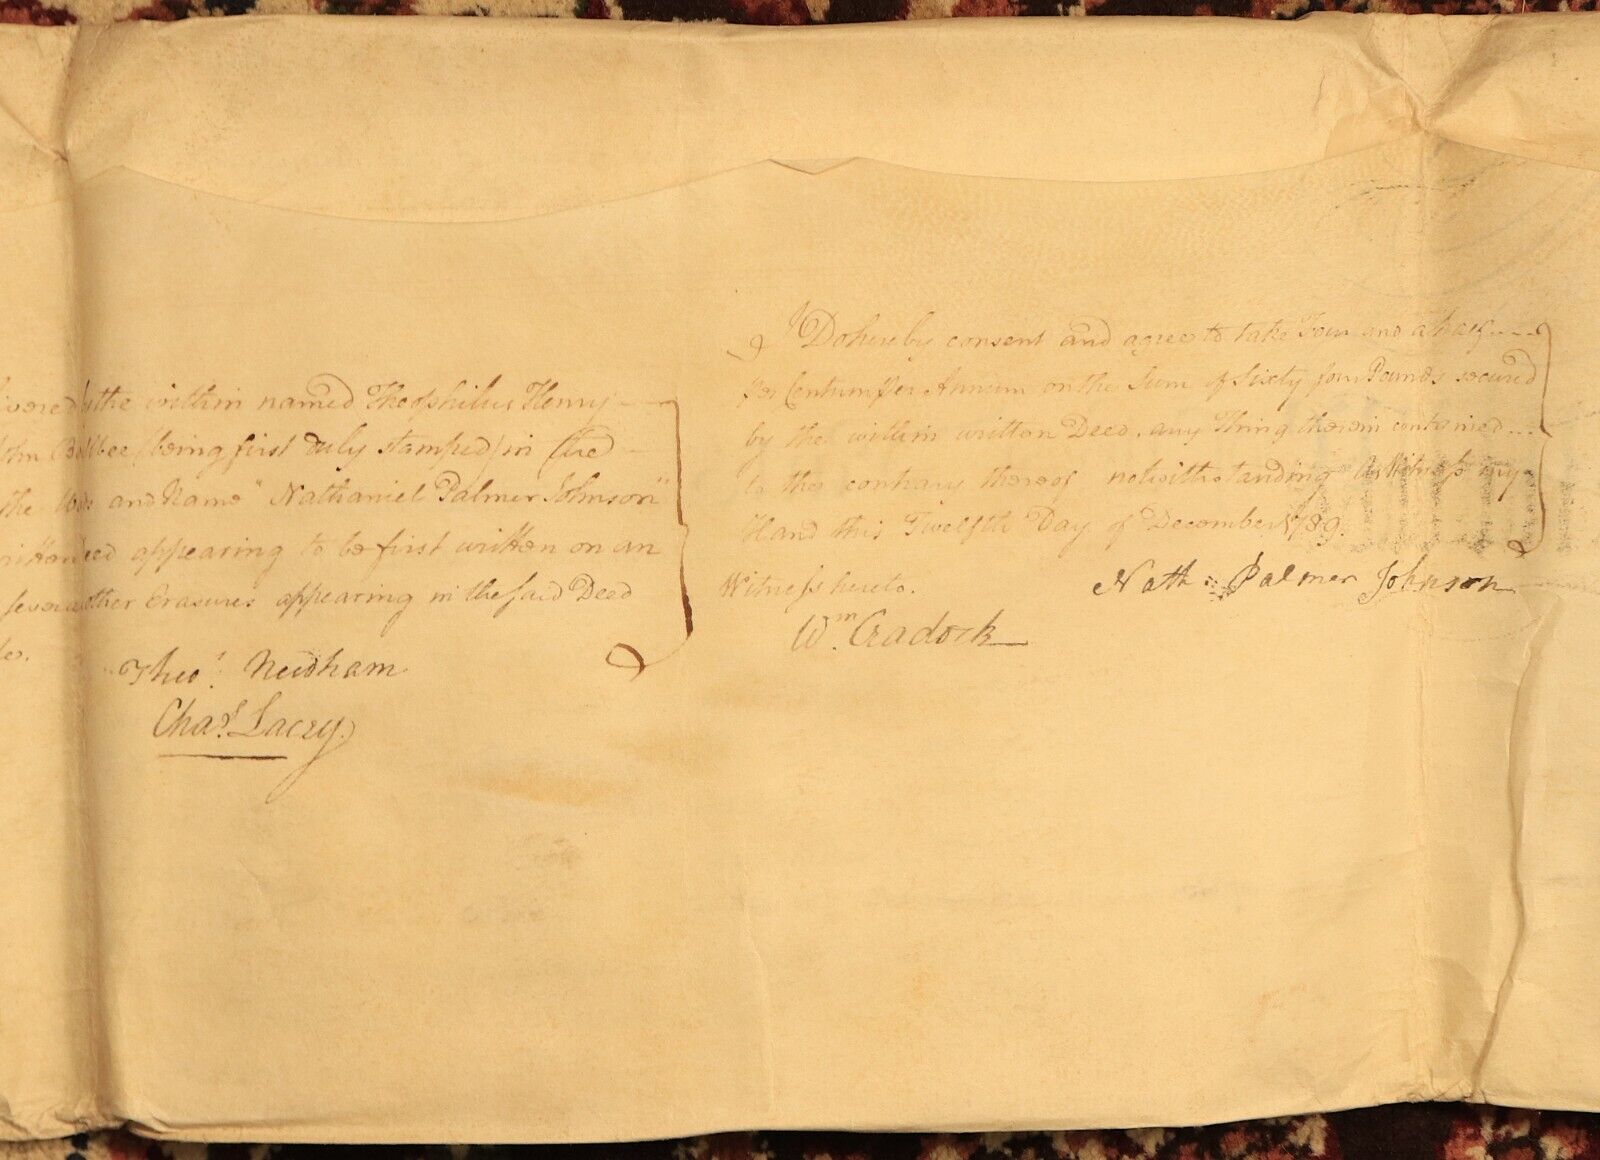 by the within named Theophilus Henry
(being first duly stamped) in the
the and Name "Nathaniel Palmer Johnson"
appearing to be first written on an
several other Erasures appearing in the said Deed
Theo.s Needham
Chas. Lacey.
I Do hereby consent and agree to take Four and a half
per Centum per Annum on the Sum of Sixty four Pounds secured
by the within written Deed, any Thing therein contained
to the contrary thereof notwithstanding As Witness my
Hand this Twelfth Day of December 1789.
Witness hereto.
Nath: Palmer Johnson
Wm. Cradock